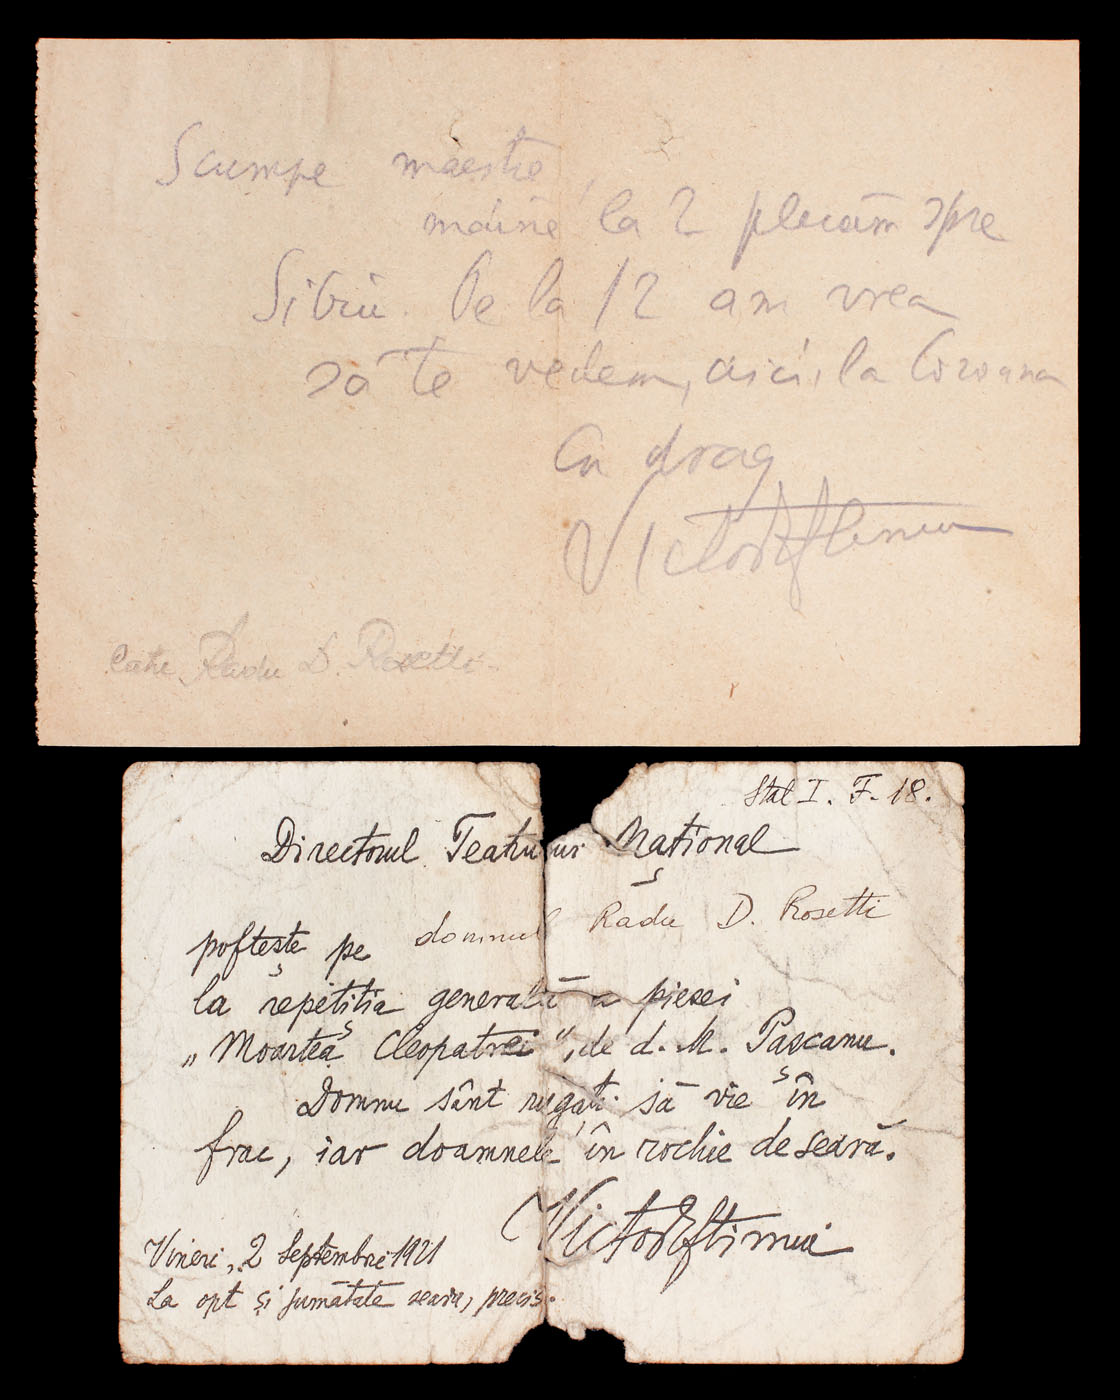 Scumpe maestre,
mâine la 2 plecăm spre
Sibiu. De la 12 am vrea
să te vedem, aici, la Coroana
Cu drag
Victor Eftimiu
Către Radu D. Rosetti
Stal I. F. 18.
Directorul Teatrului Național
poftește pe domnul Radu D. Rosetti
la repetiția generală a piesei
„Moartea Cleopatrei", de d. M. Pașcanu.
Domnii sânt rugați să vie în
frac, iar doamnele în rochie de seară.
Victor Eftimiu
Vineri, 2 Septembrie 1921
La opt și jumătate seara, precis.